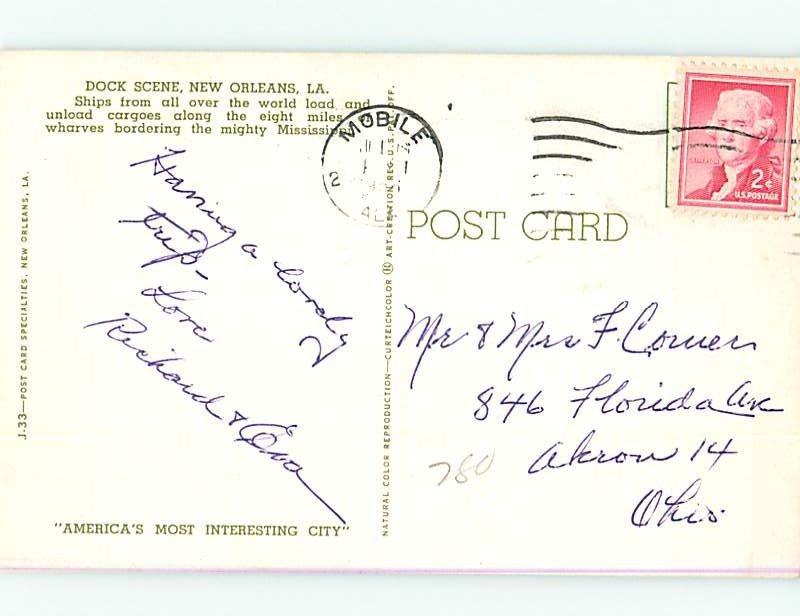 DOCK SCENE, NEW ORLEANS, LA.
Ships from all over the world load and
unload cargoes along the eight miles of
wharves bordering the mighty Mississippi.
Having a lovely
trip-
Love
Richard & Eva
"AMERICA'S MOST INTERESTING CITY"
J-33—POST CARD SPECIALTIES, NEW ORLEANS, LA.
NATURAL COLOR REPRODUCTION—CURTEICHCOLOR ® ART-CREATION REG. U.S. PAT. OFF.
MOBILE
2
POST CARD
2¢
U.S. POSTAGE
Mr & Mrs F. Comer
846 Florida Ave
Akron 14
Ohio
780